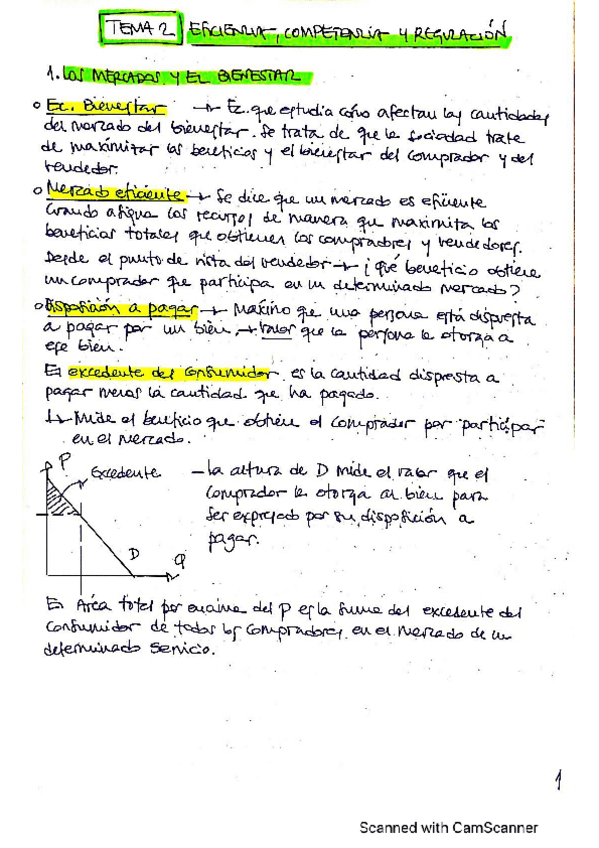 TEMA 2 EFICIENCIA, COMPETENCIA Y REGULACIÓN
1. LOS MERCADOS Y EL BIENESTAR
Ec. Bienestar → Ec. que estudia cómo afectan las cantidades
del mercado del bienestar. Se trata de que la sociedad trate
de maximitar los beneficios y el bienestar del comprador y del
vendedor.
Mercado eficiente → Se dice que un mercado es eficiente
cuando asigna los recursos de manera que maximita los
beneficios totales que obtienen los compradores y vendedores.
Desde el punto de vista del vendedor → ¿Qué beneficio obtiene
un comprador que participa en un determinado mercado?
Disposición a pagar → Máximo que una persona está dispuesta
a pagar por un bien, → valor que la persona le otorga a
ese bien.
El excedente del consumidor es la cantidad dispuesta a
pagar menos la cantidad que ha pagado.
↳ Mide el beneficio que obtiene el comprador por participar
en el mercado.
P
Excedente
D
Q
- la altura de D mide el valor que el
comprador le otorga al bien para
ser expresado por su disposición a
pagar.
El Área total por encima del P es la suma del excedente del
consumidor de todos los compradores en el mercado de un
determinado servicio.
1
Scanned with CamScanner